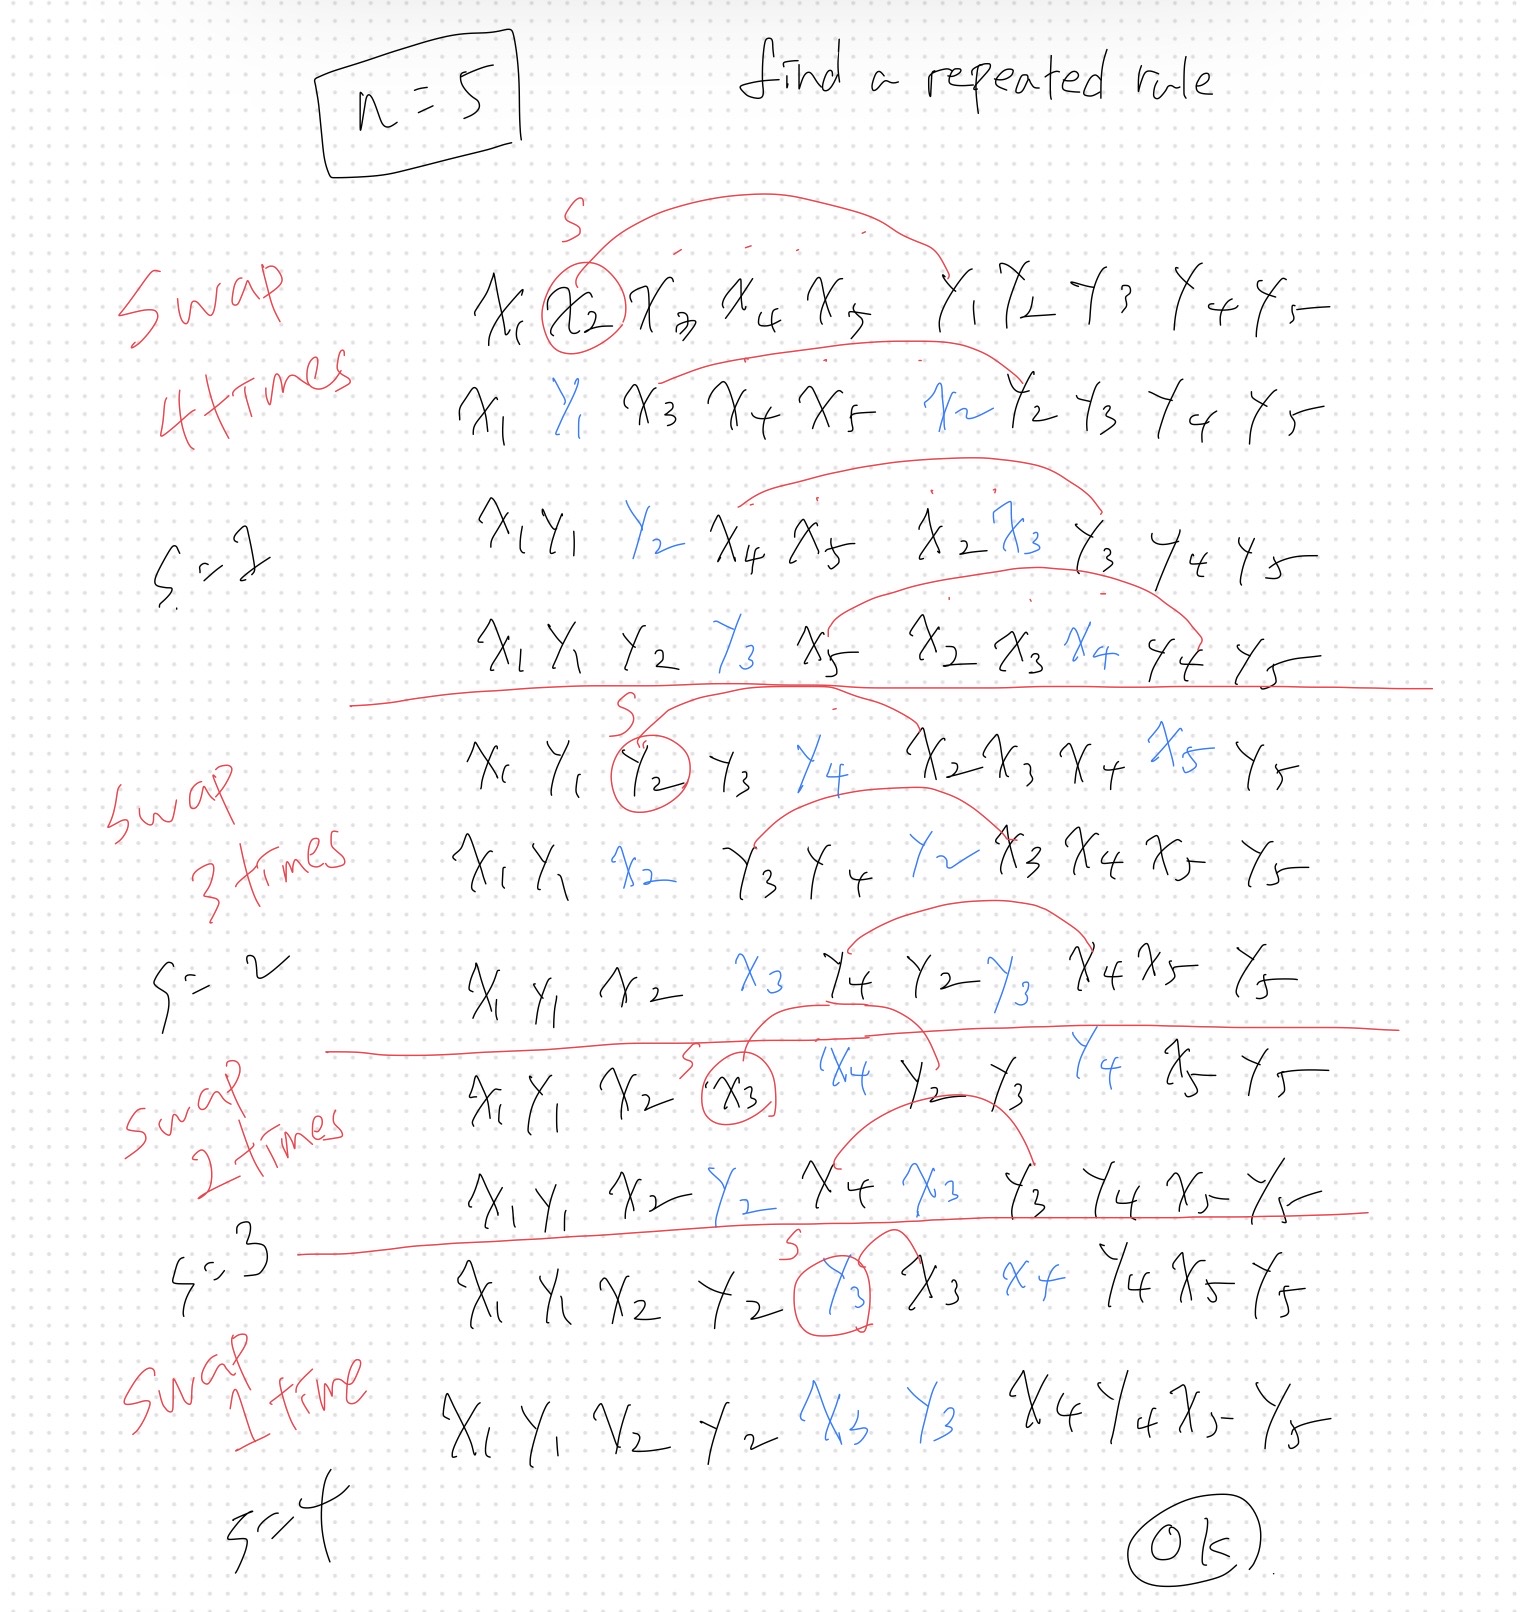 n=5
find a repeated rule
S
Swap
4 times
S=1
X1 X2 X3 X4 X5 Y1 Y2 Y3 Y4 Y5
X1 Y1 X3 X4 X5 X2 Y2 Y3 Y4 Y5
X1 Y1 Y2 X4 X5 X2 X3 Y3 Y4 Y5
X1 Y1 Y2 Y3 X5 X2 X3 X4 Y4 Y5
S
Swap
3 times
S=2
X1 Y1 Y2 Y3 Y4 X2 X3 X4 X5 Y5
X1 Y1 X2 Y3 Y4 Y2 X3 X4 X5 Y5
X1 Y1 X2 X3 Y4 Y2 Y3 X4 X5 Y5
S
Swap
2 times
S=3
X1 Y1 X2 X3 X4 Y2 Y3 Y4 X5 Y5
X1 Y1 X2 Y2 X4 X3 Y3 Y4 X5 Y5
S
Swap
1 time
S=4
X1 Y1 X2 Y2 Y3 X3 X4 Y4 X5 Y5
X1 Y1 X2 Y2 X3 Y3 X4 Y4 X5 Y5
Ok